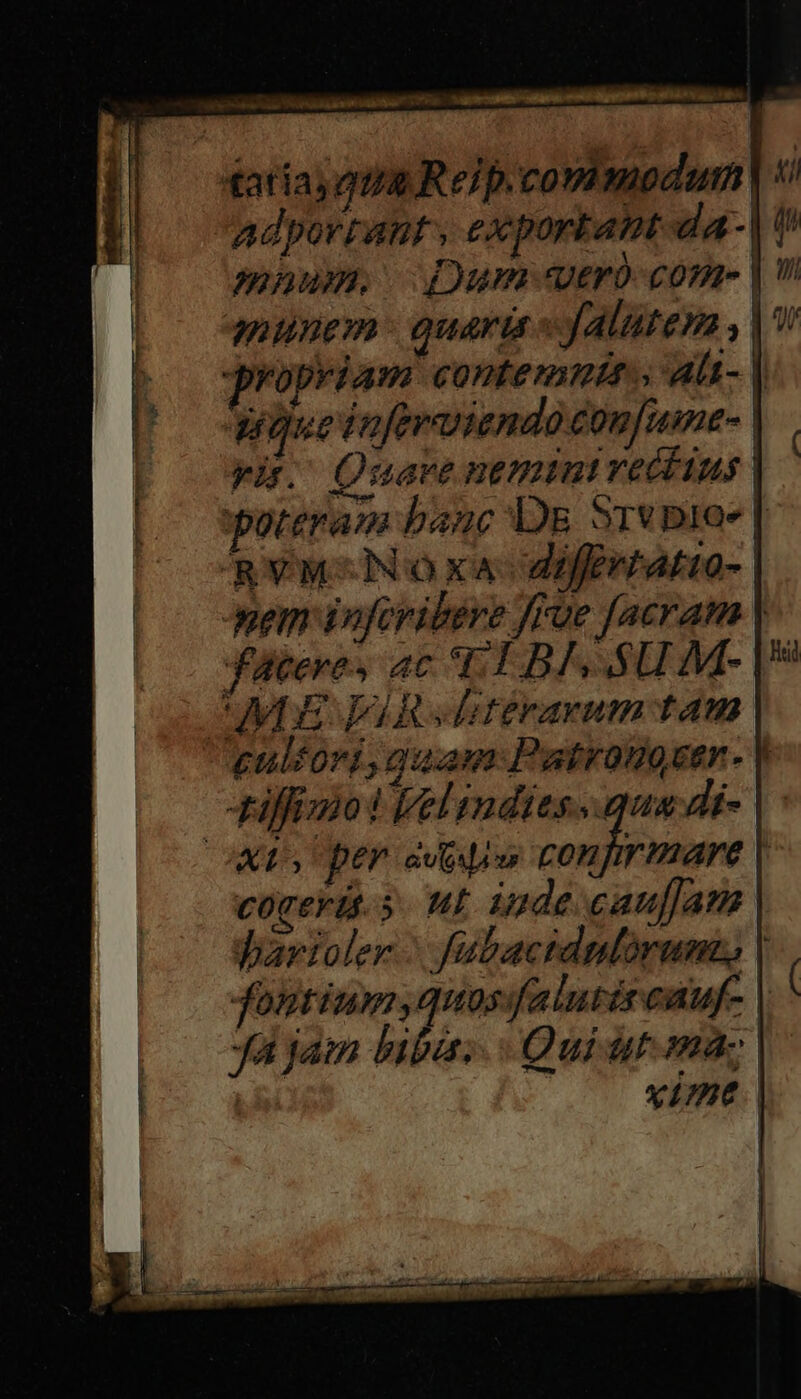 tatia, quæ Reip. commodum
adportant, exportant da-
mnum. Dum verò com-
munem quæris ſalutem,
propriam contemnis, ali-
iſque inſerviendo conſume-
ris. Quare nemini rectiùs
poteram hanc De Stvdio-
rvm Noxa diſſertatio-
nem inſcribere ſive ſacram
facere, ac TIBI, SUM-
ME VIR literarum tam
cultori, quam Patrono cer-
tiſſimo! Vel indies, quæ di-
xi, per confirmare
cogeris; ut inde cauſſam
harioler ſubacidulorum
fontium, quos ſalutis cauſ-
ſa jam bibis. Qui ut ma-
xime